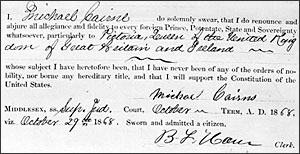 I, Michael Cairns do solemnly swear, that I do renounce and
abjure all allegiance and fidelity to every foreign Prince, Potentate, State and Sovereignty
whatsoever, particularly to Victoria Queen of the United King
dom of Great Britain and Ireland
whose subject I have heretofore been, that I have never been of any of the orders of no-
bility, nor borne any hereditary title, and that I will support the Constitution of the
United States.
Michael Cairns
MIDDLESEX, ss Sup. Jud. Court, October TERM, A. D. 1868.
viz. October 29th 1868. Sworn and admitted a citizen,
Clerk.